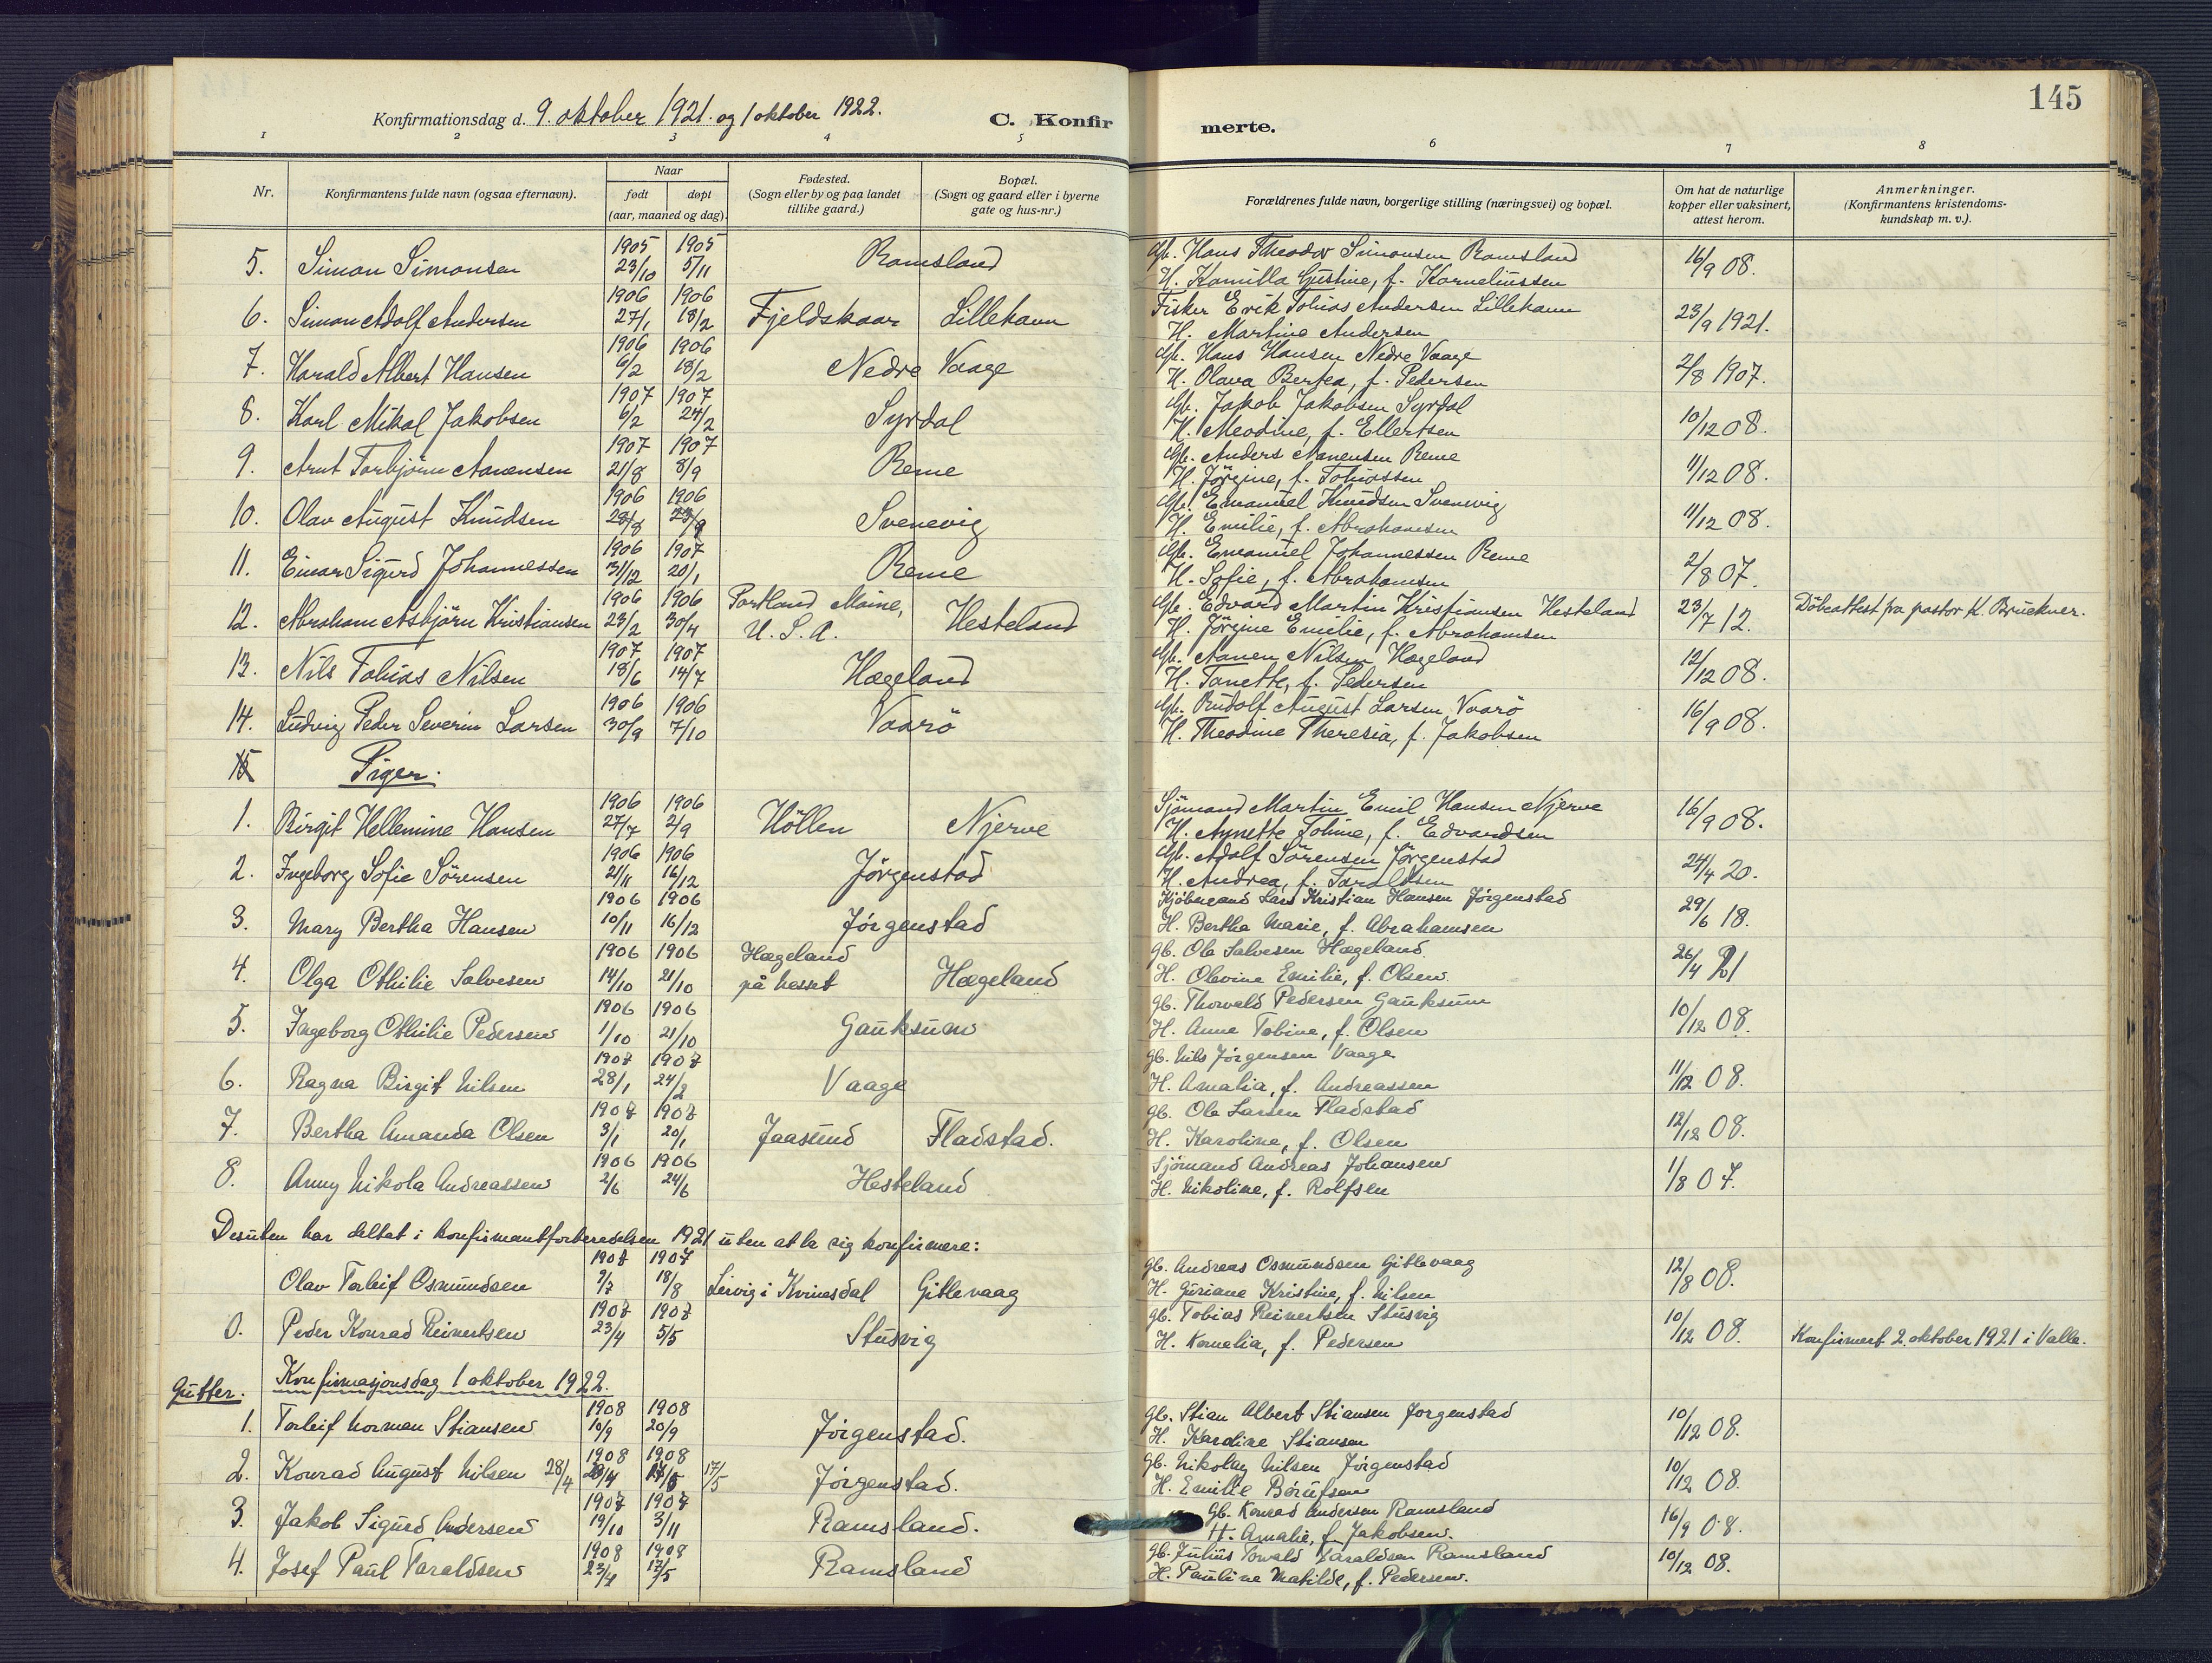 145
Konfirmationsdag d. 9. oktober 1921. og 1 oktober 1922. C. Konfir merte.
1 2 3 4 5 6 7 8
Nr. Konfirmantens fulde navn (ogsaa efternavn). Naar født døpt (aar, maaned og dag). Fødested. (Sogn eller by og paa landet tillike gaard.) Bopæl. (Sogn og gaard eller i byerne gate og hus-nr.) Forældrenes fulde navn, borgerlige stilling (næringsvei) og bopæl. Om hat de naturlige kopper eller vaksinert, attest herom. Anmerkninger. (Konfirmantens kristendoms-kundskap m. v.).
5. Simon Simonsen 1905 23/10 1905 5/11 Ramsland Gb. Hans Theodor Simonsen Ramsland 16/9 08.
H. Kamilla Gustine, f. Korneliussen
6. Simon Adolf Andersen 1906 27/1 1906 18/2 Fjeldskaar Lillehavn Fisker Erik Tobias Andersen Lillehavn 23/9 1921.
H. Martine Andersen
7. Harald Albert Hansen 1906 6/2 1906 18/2 Nedre Vaage Gb. Hans Hansen Nedre Vaage 2/8 1907.
H. Olava Bertea, f. Pedersen
8. Karl Mikal Jakobsen 1907 6/2 1907 24/2 Syrdal Gb. Jakob Jakobsen Syrdal 10/12 08.
H. Meodine, f. Ellertsen
9. Arnt Torbjörn Aanensen 1907 21/8 1907 8/9 Reme Gb. Anders Aanensen Reme 11/12 08.
H. Jörgine, f. Tobiassen
10. Olav August Knudsen 1906 1906 Svenevig Gb. Emanuel Knudsen Svenevig 11/12 08.
H. Emilie, f. Abrahamsen
11. Einar Sigurd Johannessen 1906 31/12 1907 20/1 Reme Gb. Emanuel Johannessen Reme 2/8 07.
H. Sofie, f. Abrahamsen
12. Abraham Asbjörn Kristiansen 1906 23/2 1906 30/4 Portland Maine, U.S.A. Hesteland Gb. Edvard Martin Kristiansen Hesteland 23/7 12. Döbeattest fra pastor K. Bruckner.
H. Jörgine Emilie, f. Abrahamsen
13. Nils Tobias Nilsen 1907 18/6 1907 14/7 Hægeland Gb. Aanen Nilsen Hægeland 12/12 08.
H. Tanette, f. Pedersen
14. Ludvig Peder Severin Larsen 1906 30/9 1906 7/10 Vaarö Gb. Rudolf August Larsen Vaarö 16/9 08.
H. Theodine Theresia, f. Jakobsen
Piger.
1. Birgit Hellemine Hansen 1906 27/7 1906 2/9 Höllen Njerve Sjömand Martin Emil Hansen Njerve 16/9 08.
H. Aynette Toline, f. Edvardsen
2. Ingeborg Sofie Sörensen 1906 2/11 1906 16/12 Jörgenstad Gb. Adolf Sörensen Jörgenstad 24/4 20.
H. Andrea, f. Taraldsen
3. Mary Bertha Hansen 1906 10/11 1906 16/12 Jörgenstad Kjöbmand Lars Kristian Hansen Jörgenstad 29/6 18.
H. Bertha Marie, f. Abrahamsen
4. Olga Othilie Salvesen 1906 14/10 1906 21/10 Hægeland på nesset Hægeland Gb. Ole Salvesen Hægeland 26/4 21
H. Olevine Emilie, f. Olsen
5. Ingeborg Othilie Pedersen 1906 1/10 1906 21/10 Gauksum Gb. Thorvald Pedersen Gauksum 10/12 08.
H. Anne Tobine, f. Olsen
6. Ragna Birgit Nilsen 1907 28/1 1907 24/2 Vaage Gb. Nils Jörgensen Vaage 11/12 08.
H. Amalia, f. Andreassen
7. Bertha Amanda Olsen 1907 3/1 1907 20/1 Jaasund Fladstad. Gb. Ole Larsen Fladstad 12/12 08.
H. Karoline, f. Olsen
8. Anny Nikola Andreassen 1906 2/6 1906 24/6 Hesteland Sjömand Andreas Johansen 1/8 07.
H. Nikoline, f. Rolfsen
Desuten har deltat i konfirmantforberedelsen 1921 uten at la sig konfirmere:
Olav Torleif Osmundsen 1907 9/7 1907 18/8 Lervig i Kvinesdal Gitlevaag Gb. Andreas Osmundsen Gitlevaag 12/8 08.
H. Guriane Kristine, f. Nilsen
0. Peder Konrad Reinertsen 1907 23/4 1907 5/5 Stusvig Gb. Tobias Reinertsen Stusvig 10/12 08. Konfirmert 2. oktober 1921 i Valle.
H. Kornelia, f. Pedersen
Gutter. Konfirmasjonsdag 1 oktober 1922.
1. Torleif Norman Stiansen 1908 10/9 1908 20/9 Jörgenstad. Gb. Stian Albert Stiansen Jörgenstad 10/12 08.
H. Karoline Stiansen
2. Konrad August Nilsen 28/4 1908 1908 17/5 Jörgenstad. Gb. Nikolay Nilsen Jörgenstad 10/12 08.
H. Emilie Börufsen
3. Jakob Sigurd Andersen 1907 19/10 1907 3/11 Ramsland. Gb. Konrad Andersen Ramsland 16/9 08.
H. Amalie, f. Jakobsen.
4. Josef Paul Taraldsen 1908 23/4 1908 17/5 Ramsland Gb. Julius Torvald Taraldsen Ramsland 10/12 08.
H. Pauline Matilde, f. Pedersen.